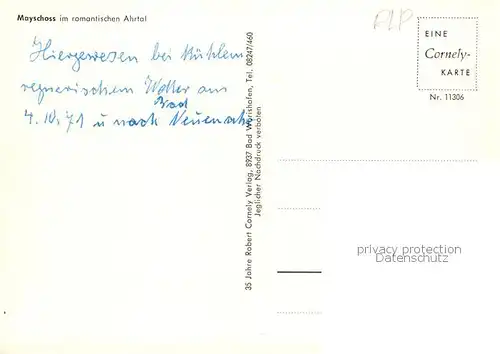 Mayschoss im romantischen Ahrtal
Hiergewesen bei kühlem
regnerischem Wetter am
4.10.71 u nach Bad Neuenahr
35 Jahre Robert Cornely Verlag, 8937 Bad Wörishofen, Tel. 08247/460
Jeglicher Nachdruck verboten
EINE
Cornely-
KARTE
Nr. 11306
privacy protection
Datenschutz akpool.de